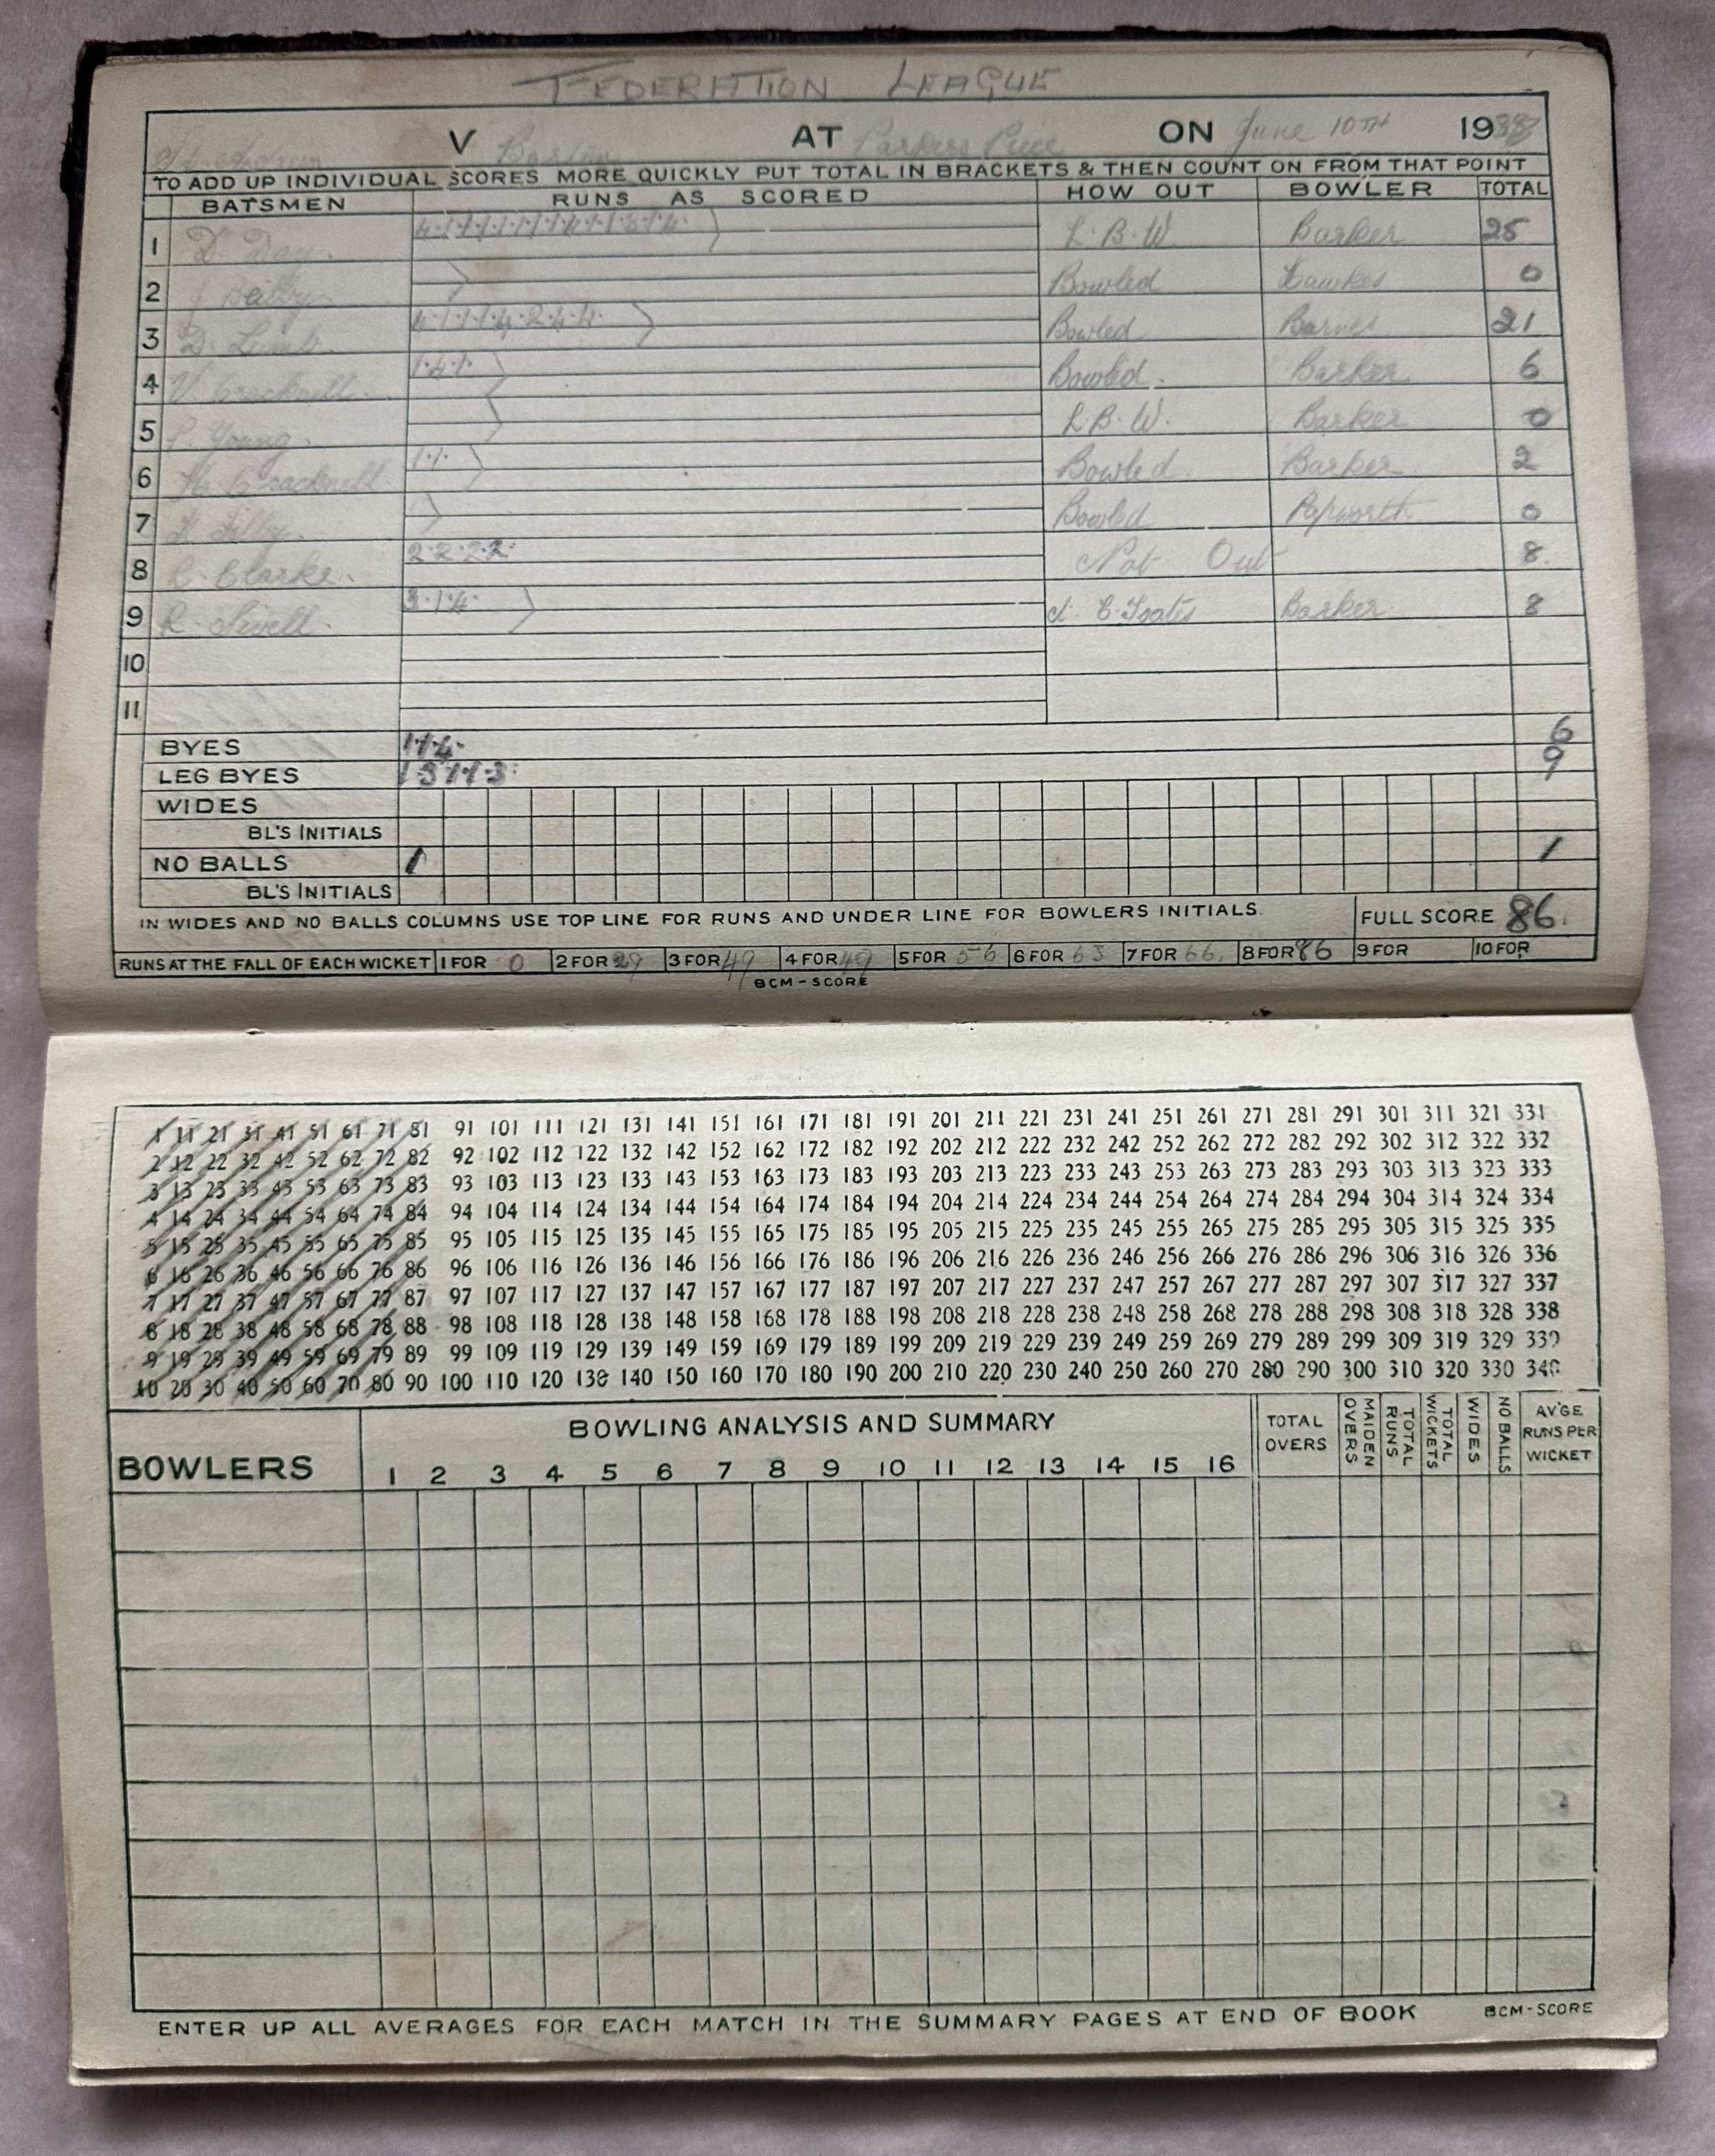 FEDERATION LEAGUE
St. Andrews V Barton AT Parkers Piece ON June 10TH 19
TO ADD UP INDIVIDUAL SCORES MORE QUICKLY PUT TOTAL IN BRACKETS & THEN COUNT ON FROM THAT POINT
BATSMEN RUNS AS SCORED HOW OUT BOWLER TOTAL
1 D. Day. L.B.W. Barker 25
2 Bowled Hawkes 0
3 D. Lumb. 4·1·1·1·4·2·4·4· Bowled Barnes 21
4 V. Cracknell. 1·4·1· Bowled. Barker 6
5 P. Young. L.B.W. Barker 0
6 H. Cracknell 1·1· Bowled. Barker 2
7 Bowled Papworth 0
8 R. Clarke. 2·2·2·2· Not Out 8.
9 R. 3·1·4· Barker 8
10
11
BYES 1·1·4· 6
LEG BYES 1·3·1·1·3· 9
WIDES
BL'S INITIALS
NO BALLS 1 1
BL'S INITIALS
IN WIDES AND NO BALLS COLUMNS USE TOP LINE FOR RUNS AND UNDER LINE FOR BOWLERS INITIALS. FULL SCORE 86.
RUNS AT THE FALL OF EACH WICKET 1 FOR 0 2 FOR 29 3 FOR 49 4 FOR 49 5 FOR 56 6 FOR 63 7 FOR 66. 8 FOR 86 9 FOR 10 FOR
BCM-SCORE
1 11 21 31 41 51 61 71 81 91 101 111 121 131 141 151 161 171 181 191 201 211 221 231 241 251 261 271 281 291 301 311 321 331
2 12 22 32 42 52 62 72 82 92 102 112 122 132 142 152 162 172 182 192 202 212 222 232 242 252 262 272 282 292 302 312 322 332
3 13 23 33 43 53 63 73 83 93 103 113 123 133 143 153 163 173 183 193 203 213 223 233 243 253 263 273 283 293 303 313 323 333
4 14 24 34 44 54 64 74 84 94 104 114 124 134 144 154 164 174 184 194 204 214 224 234 244 254 264 274 284 294 304 314 324 334
5 15 25 35 45 55 65 75 85 95 105 115 125 135 145 155 165 175 185 195 205 215 225 235 245 255 265 275 285 295 305 315 325 335
6 16 26 36 46 56 66 76 86 96 106 116 126 136 146 156 166 176 186 196 206 216 226 236 246 256 266 276 286 296 306 316 326 336
7 17 27 37 47 57 67 77 87 97 107 117 127 137 147 157 167 177 187 197 207 217 227 237 247 257 267 277 287 297 307 317 327 337
8 18 28 38 48 58 68 78 88 98 108 118 128 138 148 158 168 178 188 198 208 218 228 238 248 258 268 278 288 298 308 318 328 338
9 19 29 39 49 59 69 79 89 99 109 119 129 139 149 159 169 179 189 199 209 219 229 239 249 259 269 279 289 299 309 319 329 339
10 20 30 40 50 60 70 80 90 100 110 120 130 140 150 160 170 180 190 200 210 220 230 240 250 260 270 280 290 300 310 320 330 340
BOWLERS BOWLING ANALYSIS AND SUMMARY TOTAL OVERS MAIDEN OVERS TOTAL RUNS TOTAL WICKETS WIDES NO BALLS AV'GE RUNS PER WICKET
1 2 3 4 5 6 7 8 9 10 11 12 13 14 15 16
ENTER UP ALL AVERAGES FOR EACH MATCH IN THE SUMMARY PAGES AT END OF BOOK BCM-SCORE